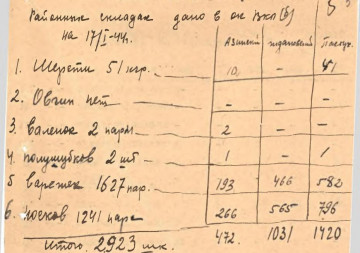 Районных складах дано в ок ВКП(б)
на 17/I-44г.
Азинский | ждановский | Пастух.
1. Шерсти 51 кгр. 10 — 41
2. Овчин нет — — —
3. валенок 2 пары 2 — —
4. полушубков 2 шт 1 — 1
5 варежек 1627 пар. 193 466 582
6. носков 1241 пара 266 565 796
Итого. 2923 шк. 472. 1031 1420